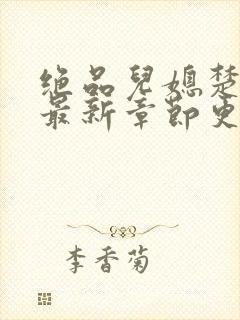 绝品儿媳楚
最新章节更
李香菊